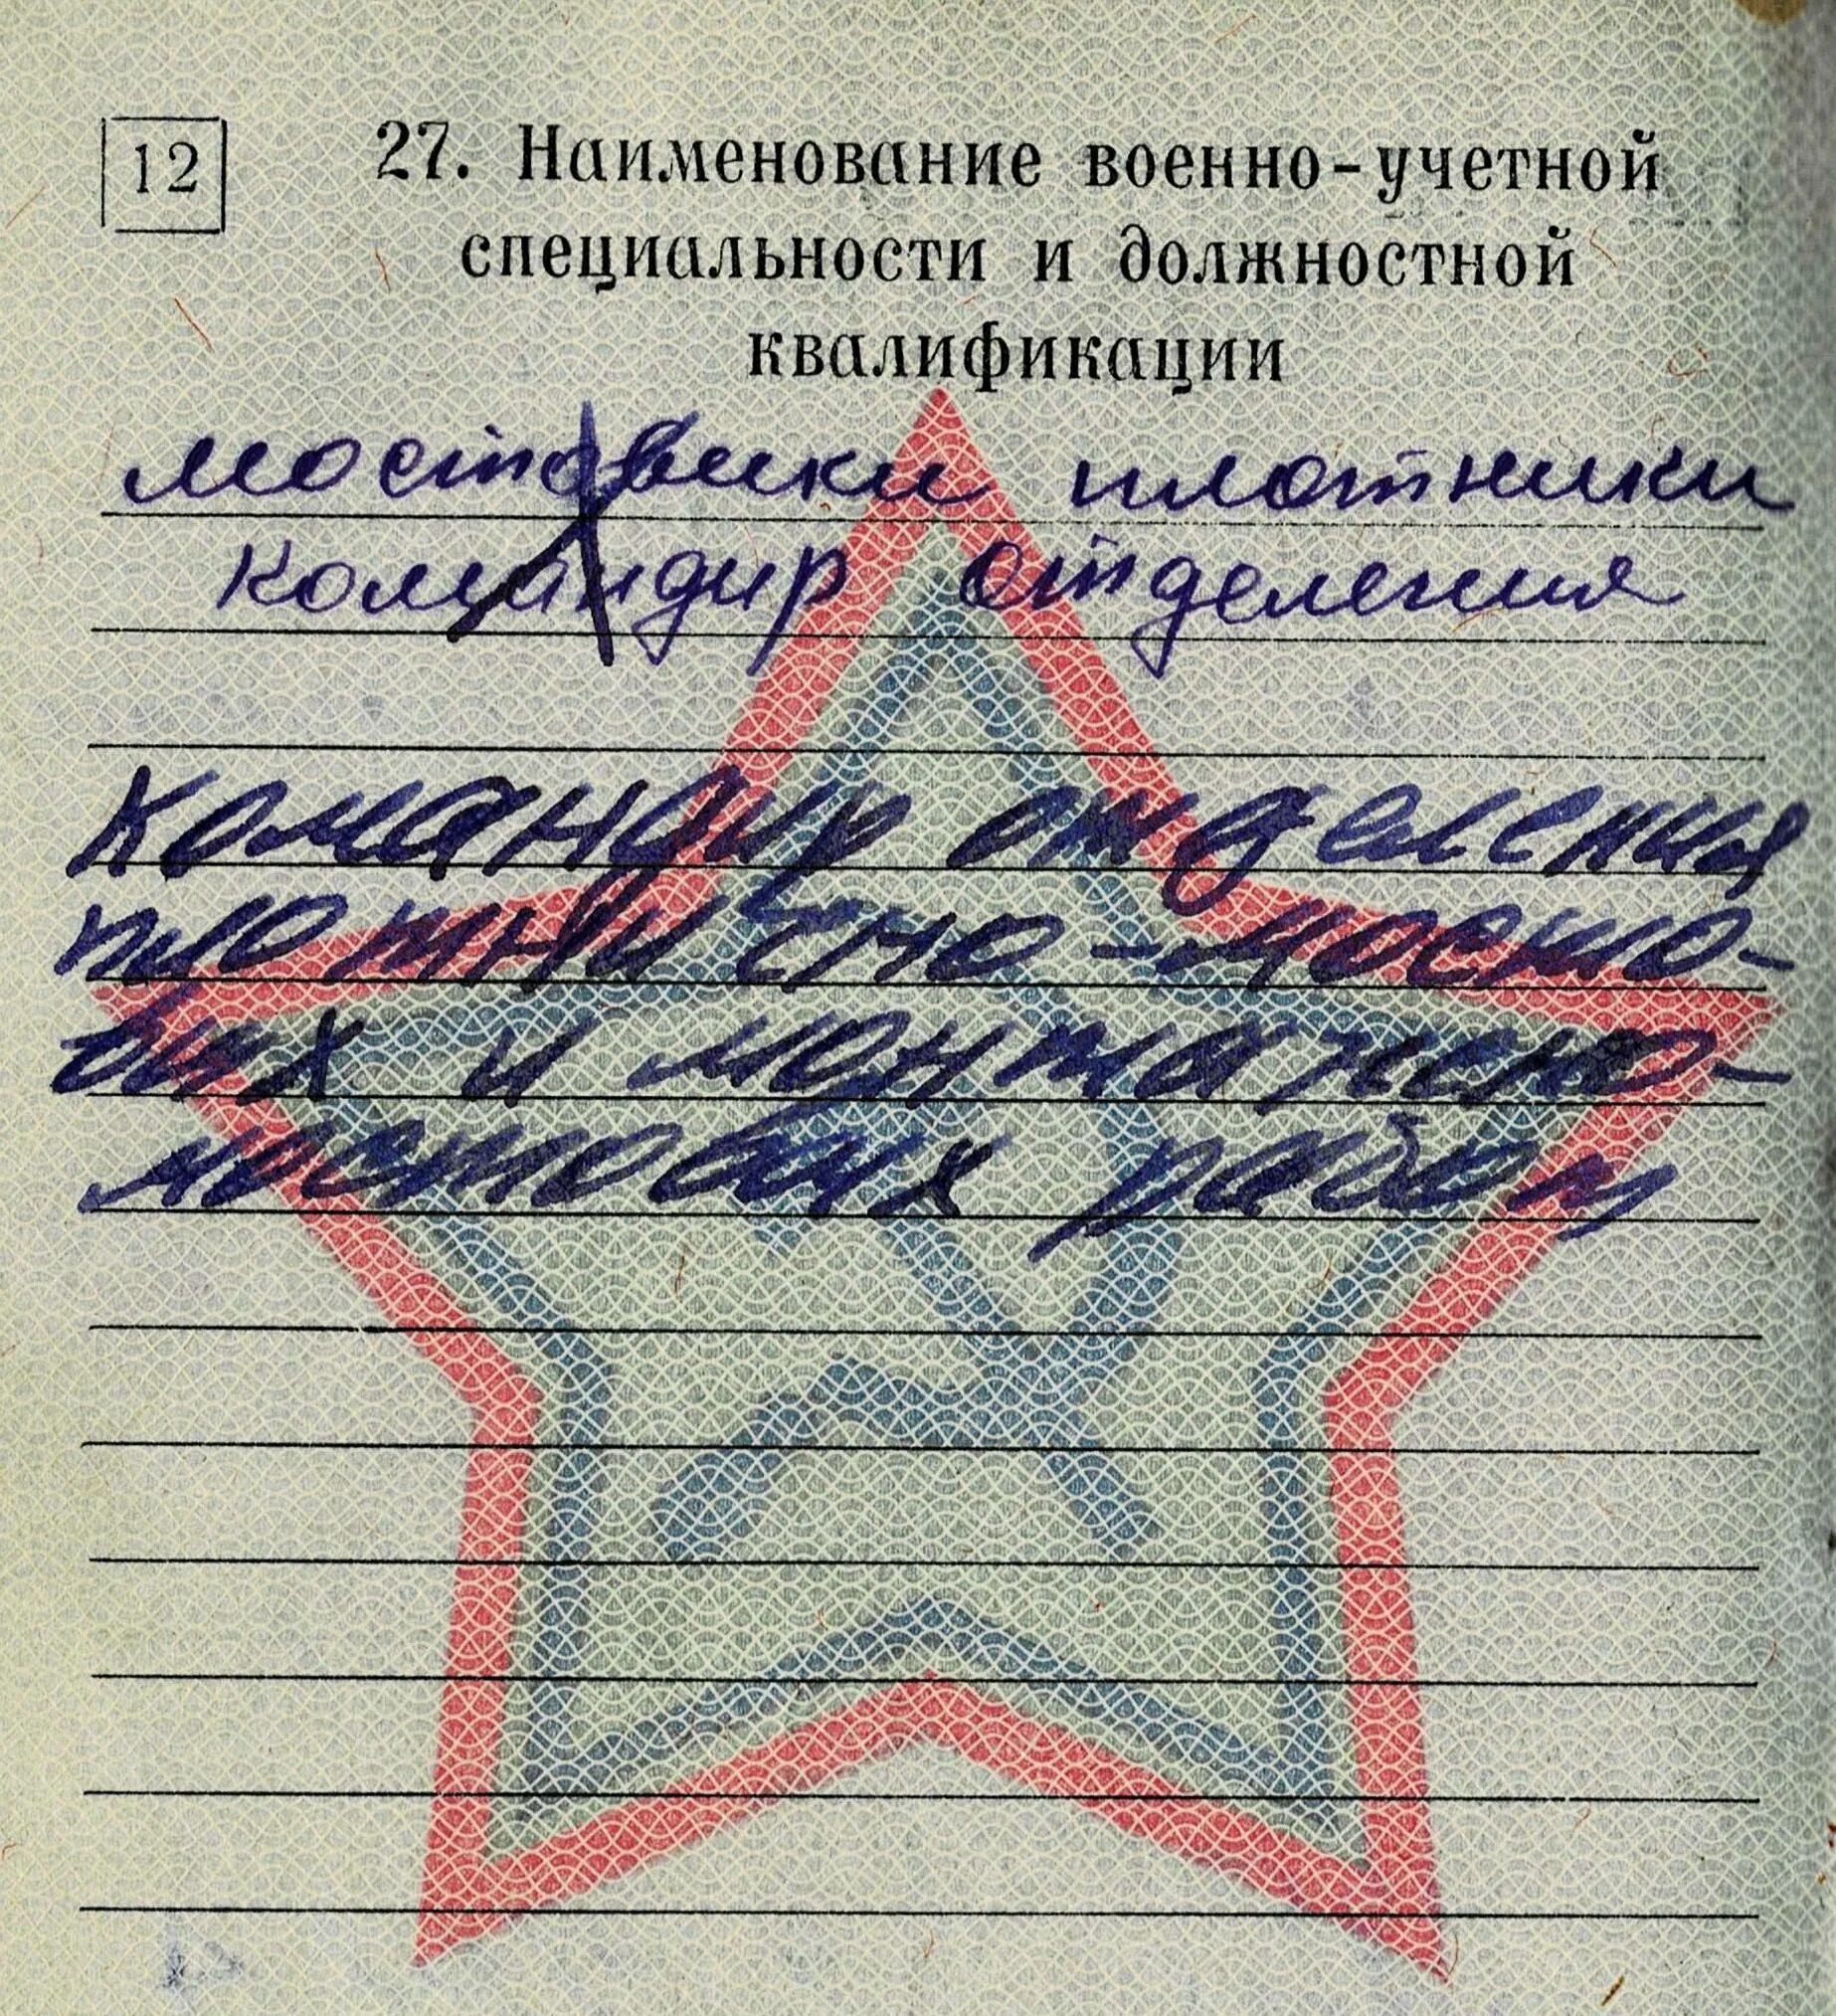 12
27. Наименование военно-учетной
специальности и должностной
квалификации
мостовики плотники
командир отделения
Командир отделения
плотнично-мосто-
вых и монтажно-
мостовых работ